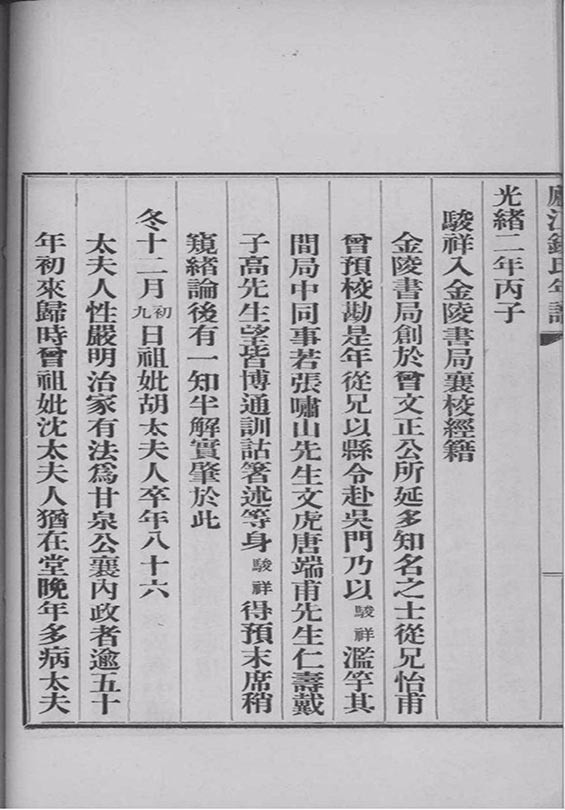 廬江錢氏年譜
光緒二年丙子
駿祥入金陵書局襄校經籍
金陵書局創於曾文正公所延多知名之士從兄怡甫
曾預校勘是年從兄以縣令赴吳門乃以駿祥濫竽其
間局中同事若張嘯山先生文虎唐端甫先生仁壽戴
子高先生望皆博通訓詁箸述等身駿祥得預末席稍
窺緒論後有一知半解實肇於此
冬十二月初九日祖妣胡太夫人卒年八十六
太夫人性嚴明治家有法爲甘泉公襄內政者逾五十
年初來歸時曾祖妣沈太夫人猶在堂晚年多病太夫